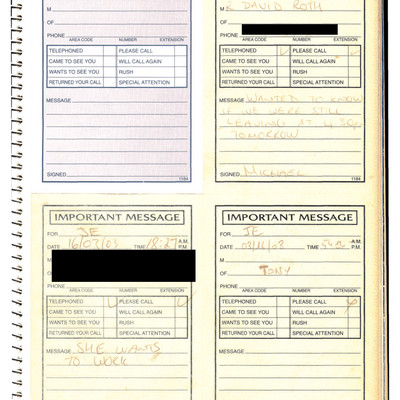 M
OF
PHONE
AREA CODE NUMBER EXTENSION
TELEPHONED PLEASE CALL
CAME TO SEE YOU WILL CALL AGAIN
WANTS TO SEE YOU RUSH
RETURNED YOUR CALL SPECIAL ATTENTION
MESSAGE
SIGNED
1184
M R DAVID ROTH
OF
PHONE
AREA CODE NUMBER EXTENSION
TELEPHONED PLEASE CALL
CAME TO SEE YOU WILL CALL AGAIN
WANTS TO SEE YOU RUSH
RETURNED YOUR CALL SPECIAL ATTENTION
MESSAGE WANTED TO KNOW
IF WE WERE STILL
LEAVING AT 4 30pm
TOMORROW
SIGNED MICHAEL
1184
IMPORTANT MESSAGE
FOR JE
DATE 16/03/03 TIME 18:27 A.M. P.M.
M
OF
PHONE
AREA CODE NUMBER EXTENSION
TELEPHONED PLEASE CALL
CAME TO SEE YOU WILL CALL AGAIN
WANTS TO SEE YOU RUSH
RETURNED YOUR CALL SPECIAL ATTENTION
MESSAGE SHE WANTS
TO WORK
IMPORTANT MESSAGE
FOR JE
DATE TIME A.M. P.M.
M
OF TONY
PHONE
AREA CODE NUMBER EXTENSION
TELEPHONED PLEASE CALL
CAME TO SEE YOU WILL CALL AGAIN
WANTS TO SEE YOU RUSH
RETURNED YOUR CALL SPECIAL ATTENTION
MESSAGE